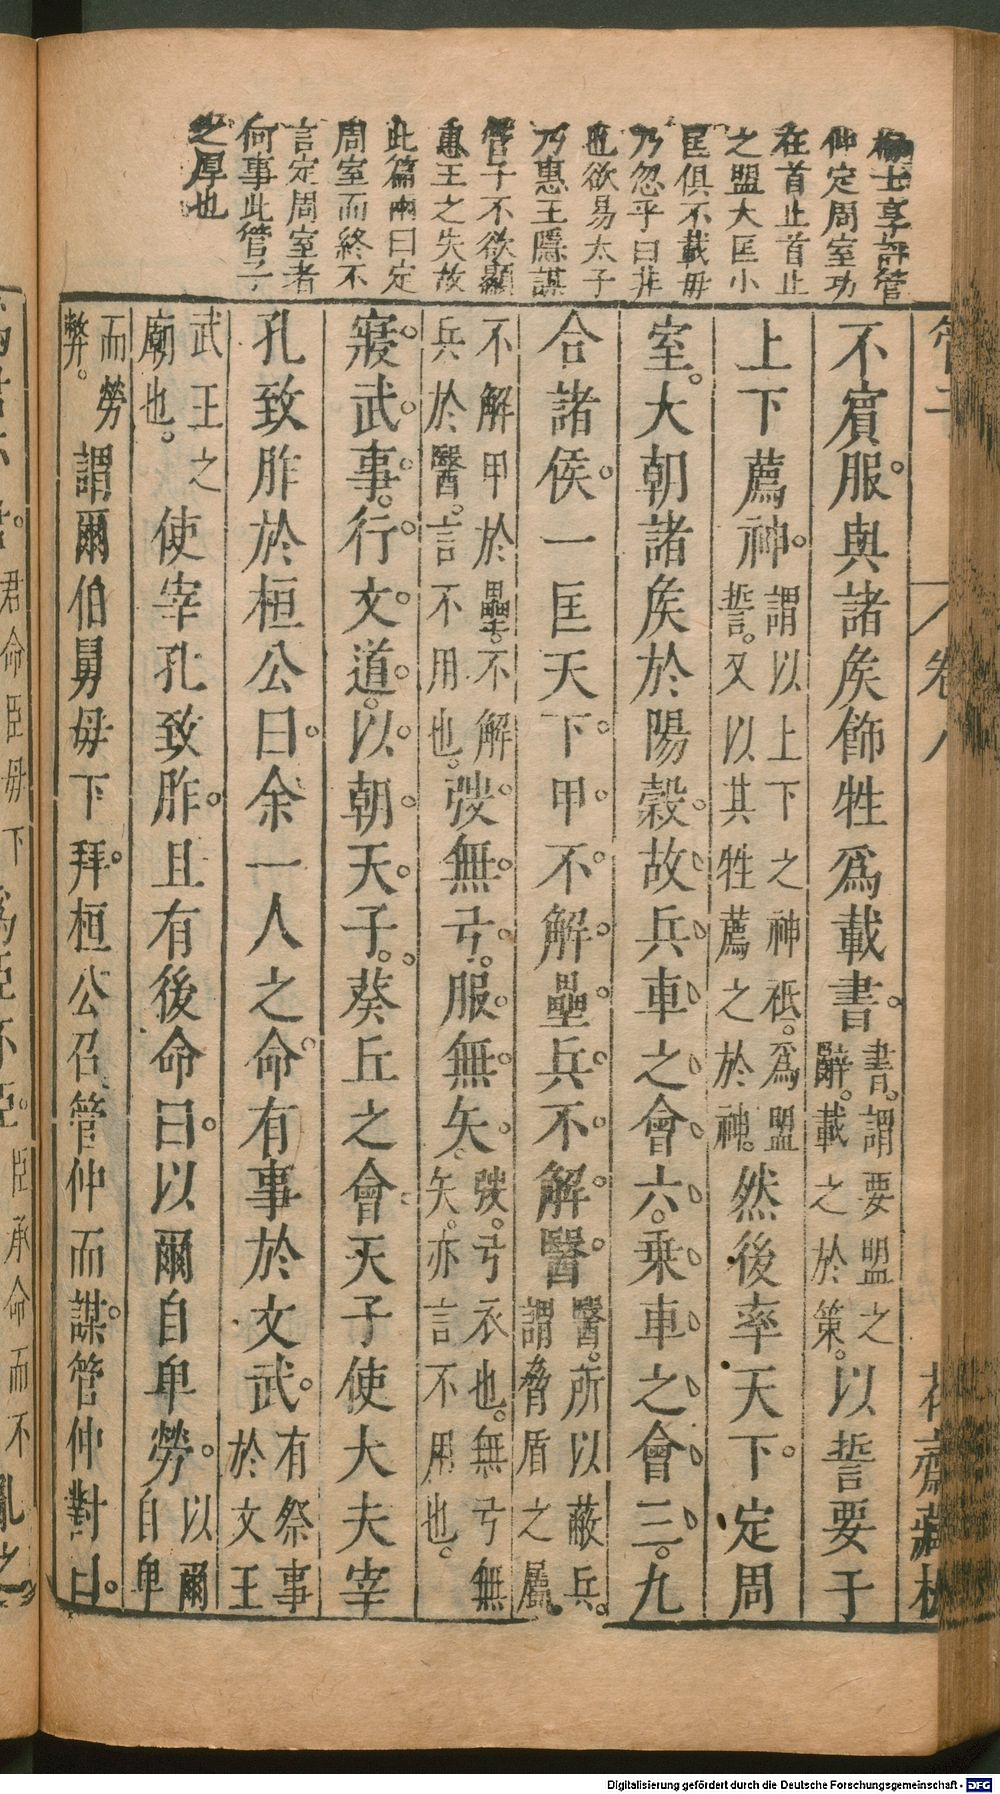 士享評管
仲定周室功
在首止首止
之盟大匡小
匡俱不載毋
乃忽乎曰非
也欲易太子
乃惠王隱謀
管子不欲顯
惠王之失故
此篇兩曰定
周室而終不
言定周室者
何事此管子
之厚也
管子 卷八 花齋藏板
不賓服與諸矦飾牲爲載書。書謂要盟之辭。載之於策。以誓要于
上下薦神。謂以上下之神祗。爲盟誓。又以其牲薦之於神。然後率天下。定周
室。大朝諸矦於陽穀。故兵車之會六。乘車之會三。九
合諸侯。一匡天下。甲不解壘。兵不解醫。醫。所以蔽兵。謂脅盾之屬。
不解甲於壘。不解兵於醫。言不用也。弢無弓。服無矢。弢。弓衣也。無弓無矢。亦言不用也。
寢武事。行文道。以朝天子。葵丘之會天子使大夫宰
孔致胙於桓公曰。余一人之命有事於文武。有祭事於文王
武王之廟也。使宰孔致胙。且有後命曰。以爾自卑勞。以爾自卑
而勞弊。謂爾伯舅毋下拜。桓公召管仲而謀。管仲對曰。
君命臣毋下
臣承命而不
亂之
Digitalisierung gefördert durch die Deutsche Forschungsgemeinschaft - DFG